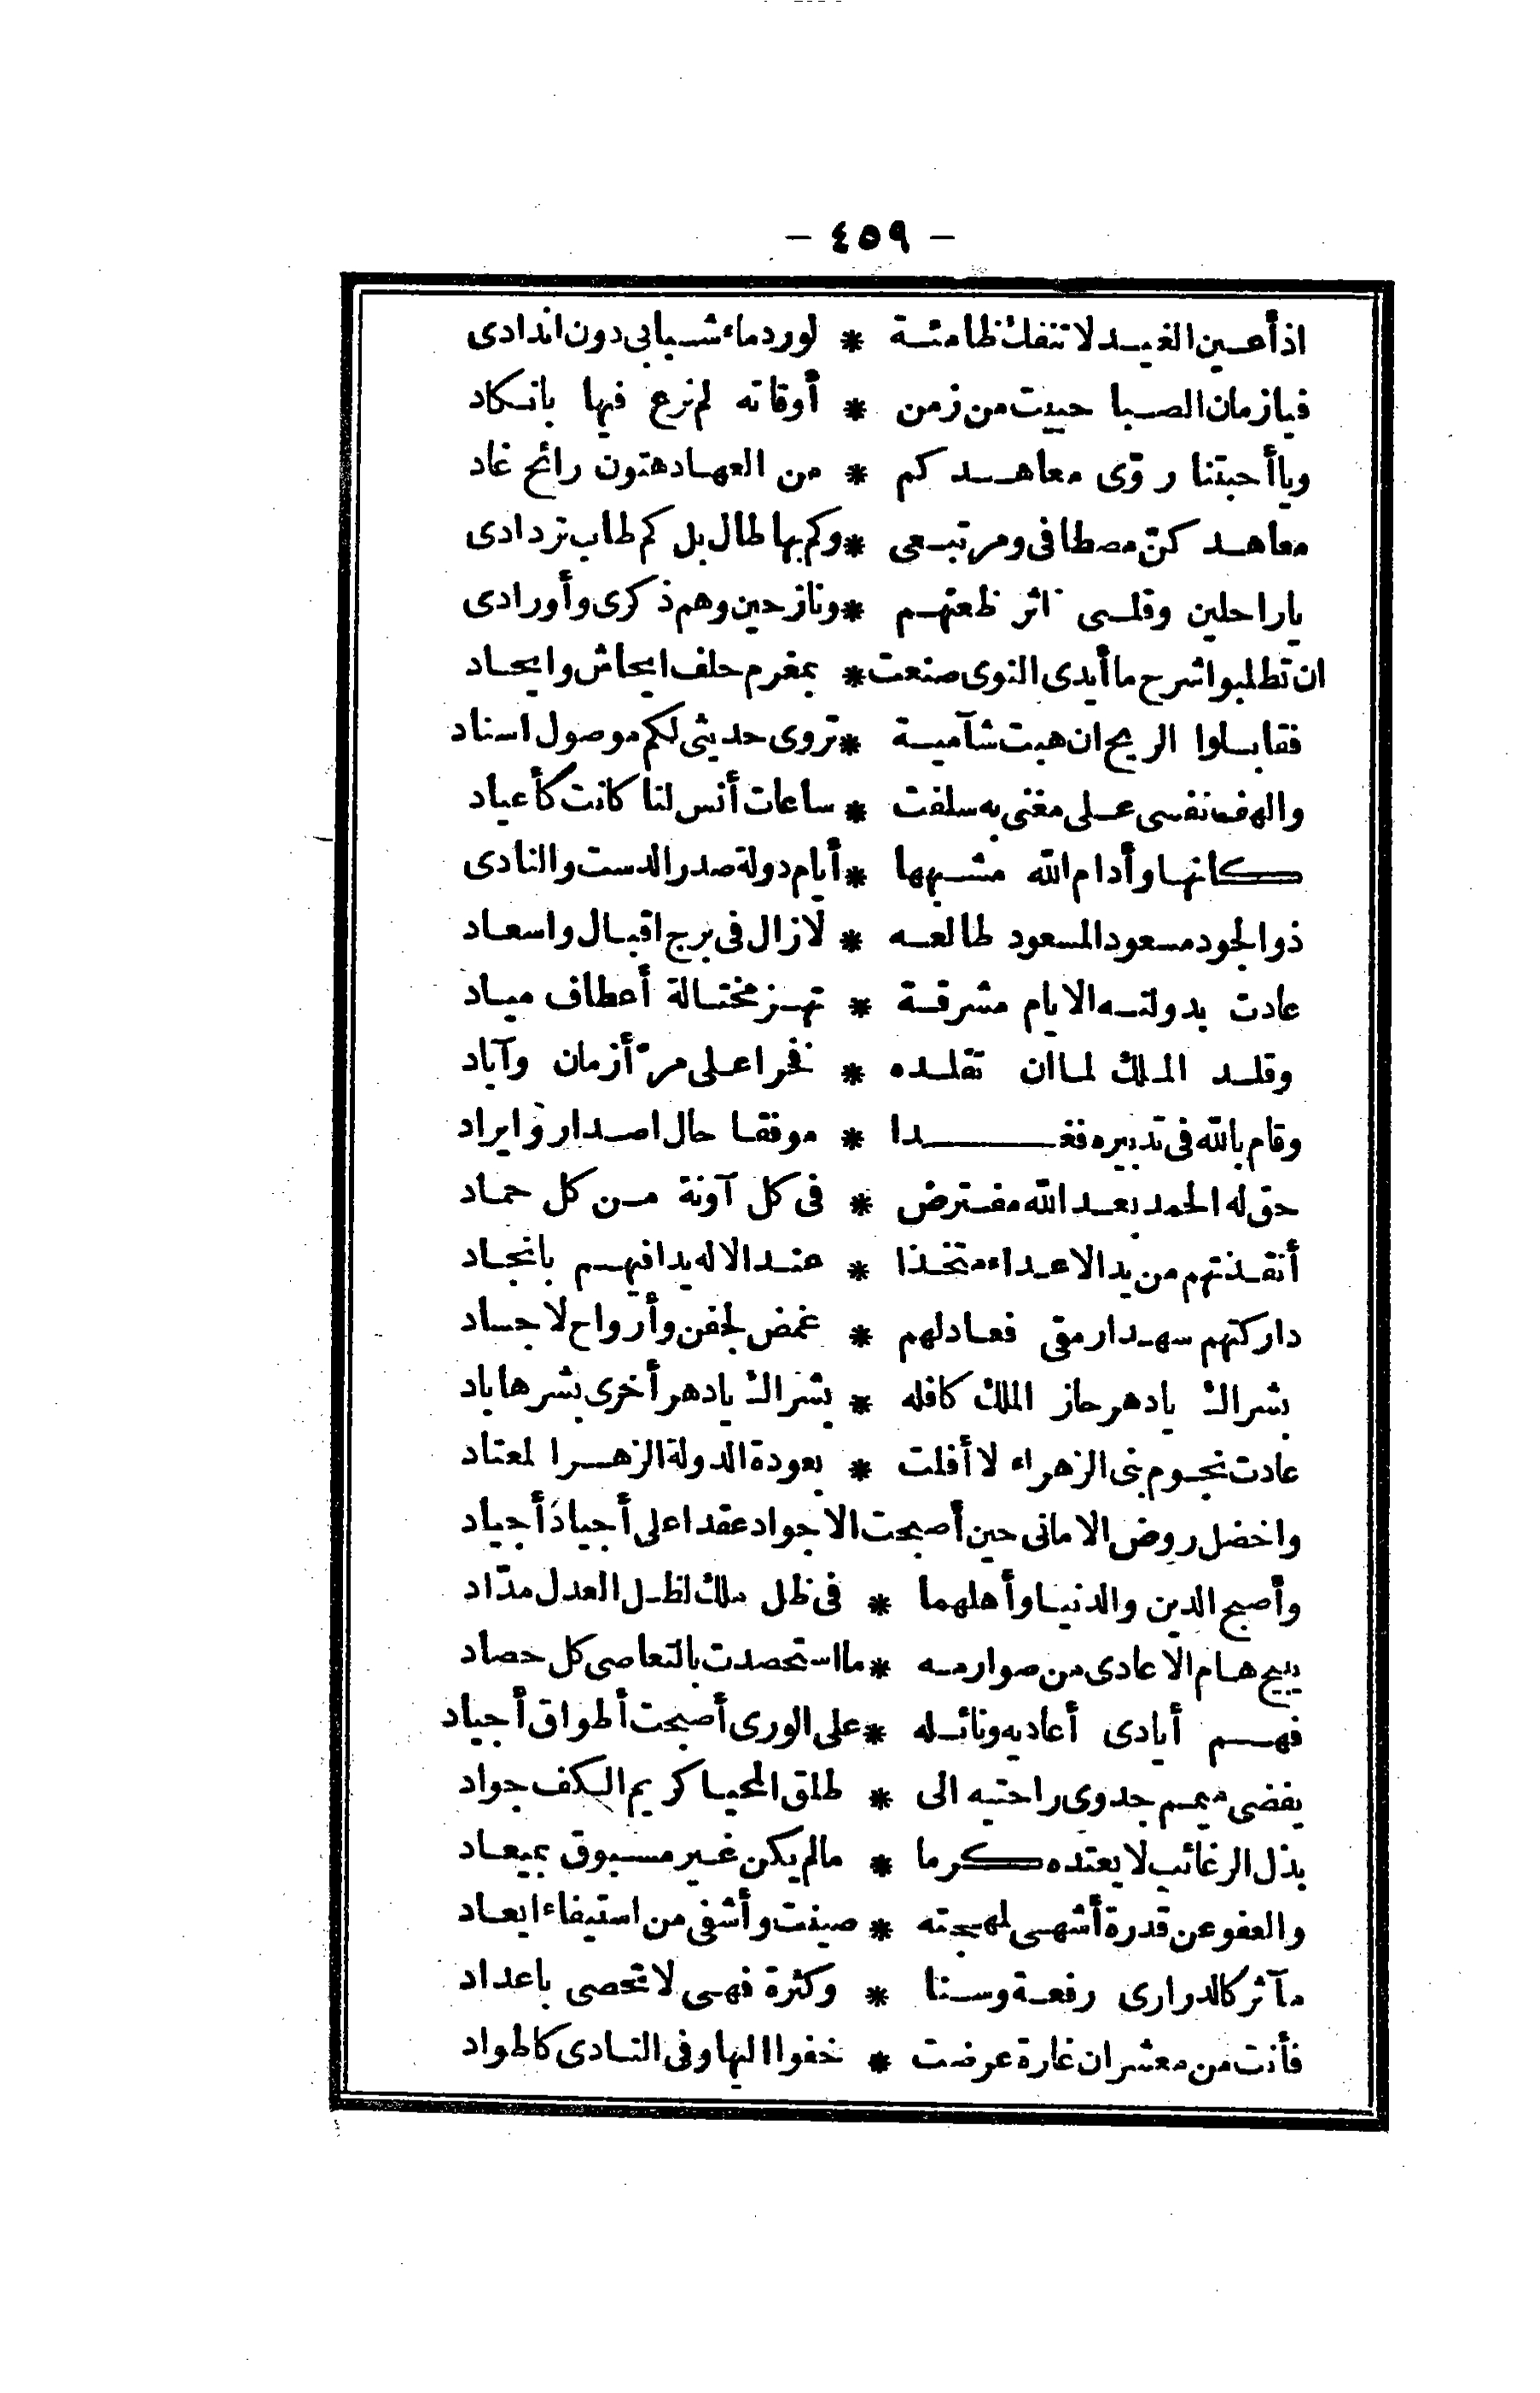 — ٤٥٩ —
اذ أعين الغيد لا تنفك ظامئة * لورد ماء شبابى دون اندادى
فيا زمان الصبا حييت من زمن * أوقاته لم نرع فيها بانكاد
ويا أحبتنا روّى معاهدكم * من العهاد هتون رائح غاد
معاهد كنّ مصطافى ومرتبعى * وكم بها طال بل كم طاب تردادى
يا راحلين وقلبى اثر ظعنهم * ونازحين وهم ذكرى وأورادى
ان تطلبوا شرح ما أيدى النوى صنعت * بمغرم حلف ايحاش وايحاد
فقابلوا الريح ان هبت شآمية * تروى حديثى لكم موصول اسناد
والهف نفسى على مغنى به سلفت * ساعات أنس لنا كانت كأعياد
كانها وأدام الله مشبهها * أيام دولة صدر الدست والنادى
ذو الجود مسعود المسعود طالعه * لا زال فى برج اقبال واسعاد
عادت بدولته الايام مشرقة * تهز مختالة أعطاف مياد
وقلد الملك لما ان تقلده * فخرا على مرّ أزمان وآباد
وقام بالله فى تدبيره فغدا * موفقا حال اصدار وايراد
حق له الحمد بعد الله مفترض * فى كل آونة من كل حماد
أنقذتهم من يد الاعداء متخذا * عند الاله يدا فيهم بانجاد
داركتهم سهدا رمقى فعادلهم * غمض لجفن وأرواح لاجساد
بشراك يا دهر حاز الملك كافله * بشراك يا دهر أخرى بشرها باد
عادت نجوم بنى الزهراء لا أفلت * بعودة الدولة الزهرا لمعتاد
واخضل روض الامانى حين أصبحت الاجواد عقدا على أجياد أجياد
وأصبح الدين والدنيا وأهلهما * فى ظل ملك لظل العدل مدّاد
يبيح هام الاعادى من صوارمه * ما استحصدت بالتعاصى كل حصاد
فهم أيادى أعاديه ونائله * على الورى أصبحت أطواق أجياد
يفضى ميمم جدوى راحتيه الى * طلق المحيا كريم الكف جواد
بذل الرغائب لا يعتده كرما * ما لم يكن غير مسبوق بميعاد
والعفو عن قدرة أشهى لمهجته * صينت وأشفى من استيفاء ايعاد
مآثر كالدرارى رفعة وسنا * وكثرة فهى لا تحصى باعداد
فأنت من معشر ان غارة عرضت * خفوا اليها وفى النادى كاطواد